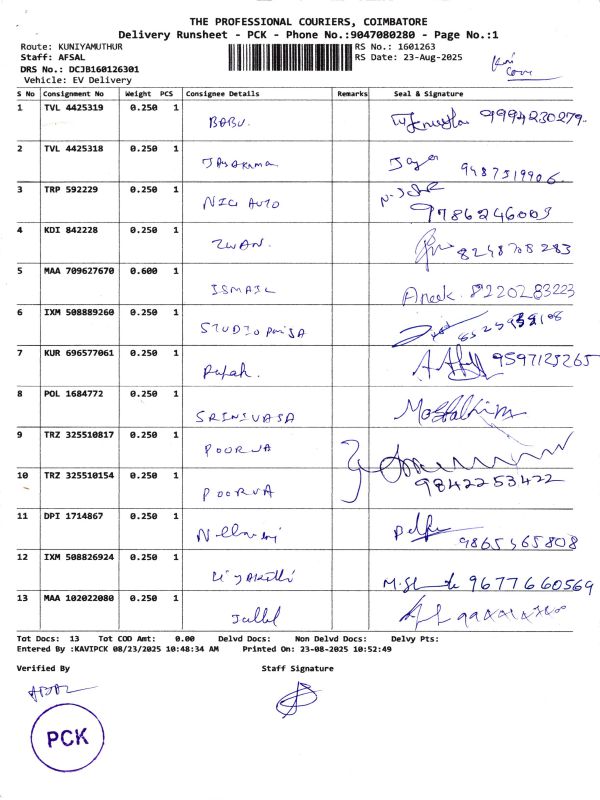 THE PROFESSIONAL COURIERS, COIMBATORE
Delivery Runsheet - PCK - Phone No.:9047080280 - Page No.:1
Route: KUNIYAMUTHUR RS No.: 1601263
Staff: AFSAL RS Date: 23-Aug-2025
DRS No.: DCJB160126301
Vehicle: EV Delivery
S No Consignment No Weight PCS Consignee Details Remarks Seal & Signature
1 TVL 4425319 0.250 1 BABU. 9994230279.
2 TVL 4425318 0.250 1 9487519906
3 TRP 592229 0.250 1 NICE AUTO 9786246003
4 KDI 842228 0.250 1 ZWAN. 8248708283
5 MAA 709627670 0.600 1 ISMAIL Aneek. 8220283223
6 IXM 508889260 0.250 1 STUDIO
7 KUR 696577061 0.250 1 9597125265
8 POL 1684772 0.250 1 SRINIVASA
9 TRZ 325510817 0.250 1 POORVA
10 TRZ 325510154 0.250 1 POORVA 9842253422
11 DPI 1714867 0.250 1 9865565808
12 IXM 508826924 0.250 1 9677660569
13 MAA 102022080 0.250 1
Tot Docs: 13 Tot COD Amt: 0.00 Delvd Docs: Non Delvd Docs: Delvy Pts:
Entered By :KAVIPCK 08/23/2025 10:48:34 AM Printed On: 23-08-2025 10:52:49
Verified By Staff Signature
AFSAL
PCK